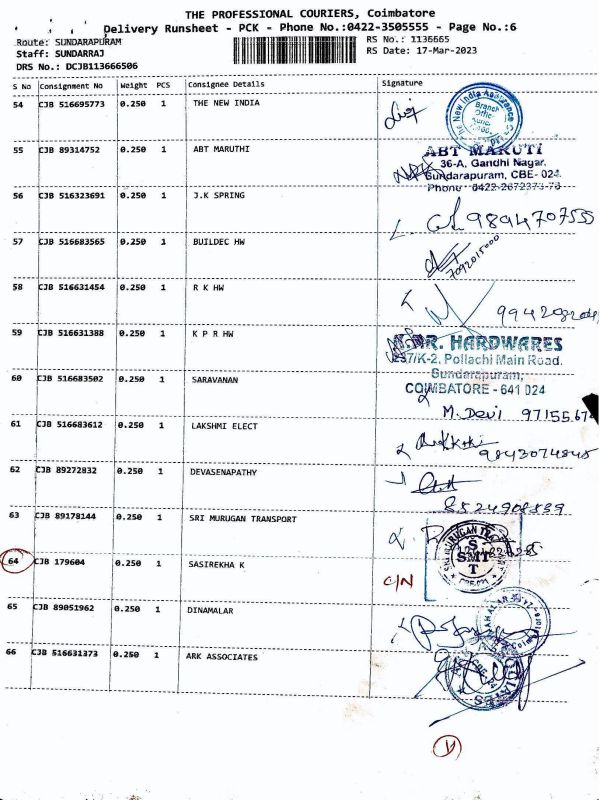 THE PROFESSIONAL COURIERS, Coimbatore
Delivery Runsheet - PCK - Phone No.:0422-3505555 - Page No.:6
Route: SUNDARAPURAM
RS No.: 1136665
Staff: SUNDARRAJ
RS Date: 17-Mar-2023
DRS No.: DCJB113666506
S No Consignment No Weight PCS Consignee Details Signature
54 CJB 516695773 0.250 1 THE NEW INDIA
Branch
55 CJB 89314752 0.250 1 ABT MARUTHI
ABT MARUTI
36-A, Gandhi Nagar,
Sundarapuram, CBE- 024.
Phone : 0422-2672373-76
56 CJB 516323691 0.250 1 J.K SPRING
9894707555
57 CJB 516683565 0.250 1 BUILDEC HW
7092015000
58 CJB 516631454 0.250 1 R K HW
59 CJB 516631388 0.250 1 K P R HW
HARDWARES
237/K-2, Pollachi Main Road,
Sundarapuram,
COIMBATORE - 641 024
60 CJB 516683502 0.250 1 SARAVANAN
M. Devi 97155
61 CJB 516683612 0.250 1 LAKSHMI ELECT
9843074845
62 CJB 89272832 0.250 1 DEVASENAPATHY
63 CJB 89178144 0.250 1 SRI MURUGAN TRANSPORT
SMT
64 CJB 179604 0.250 1 SASIREKHA K C/N
65 CJB 89051962 0.250 1 DINAMALAR
66 CJB 516631373 0.250 1 ARK ASSOCIATES